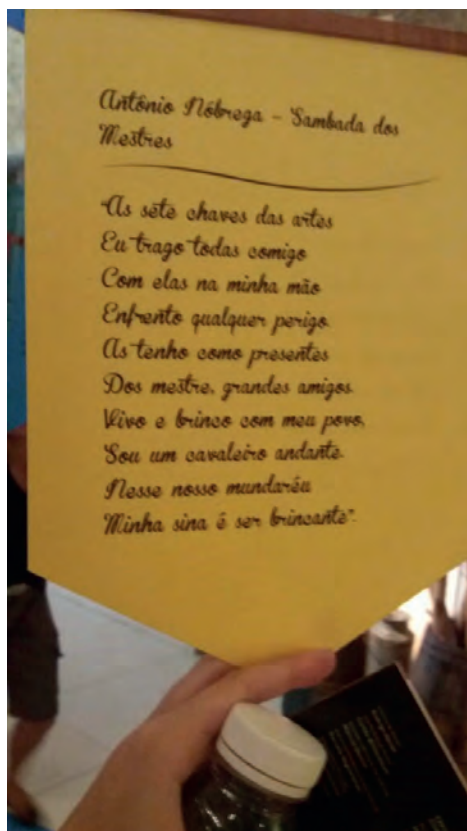 Antônio Nóbrega - Sambada dos
Mestres
"As sete chaves das artes
Eu trago todas comigo
Com elas na minha mão
Enfrento qualquer perigo.
As tenho como presentes
Dos mestre, grandes amigos.
Vivo e brinco com meu povo,
Sou um cavaleiro andante.
Nesse nosso mundaréu
Minha sina é ser brincante".